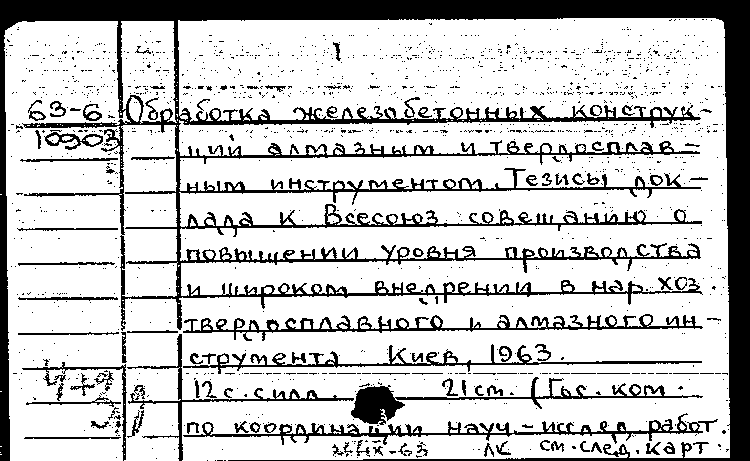 1
63-6 Обработка железобетонных конструк-
10903 ций алмазным и твердосплав-
ным инструментом. Тезисы док-
лада к Всесоюз. совещанию о
повышении уровня производства
и широком внедрении в нар. хоз.
твердосплавного и алмазного ин-
струмента Киев, 1963.
12 с. с илл. 21 см. (Гос. ком.
по координации науч.-исслед. работ.
ЛК см. след. карт.